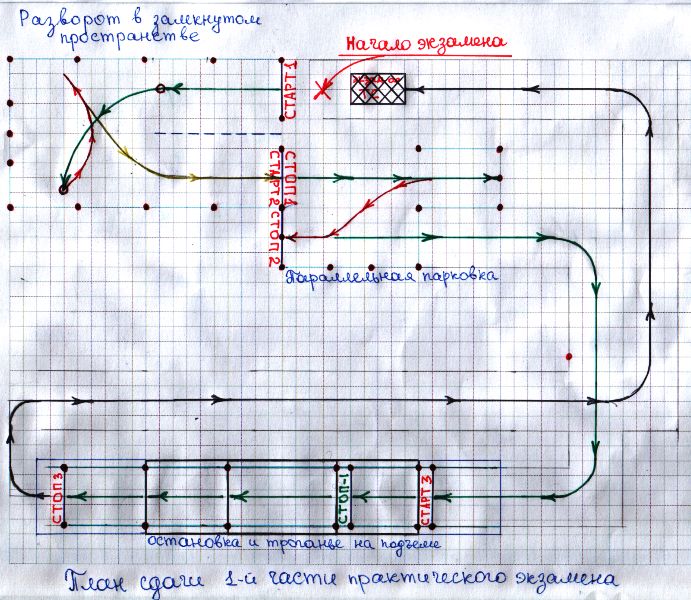 Разворот в замкнутом
пространстве
Начало экзамена
СТАРТ 1
СТОП 1
СТАРТ 2
СТОП 2
Параллельная парковка
СТОП 3
СТОП-1
СТАРТ 3
остановка и троганье на подъеме
План сдачи 1-й части практического экзамена